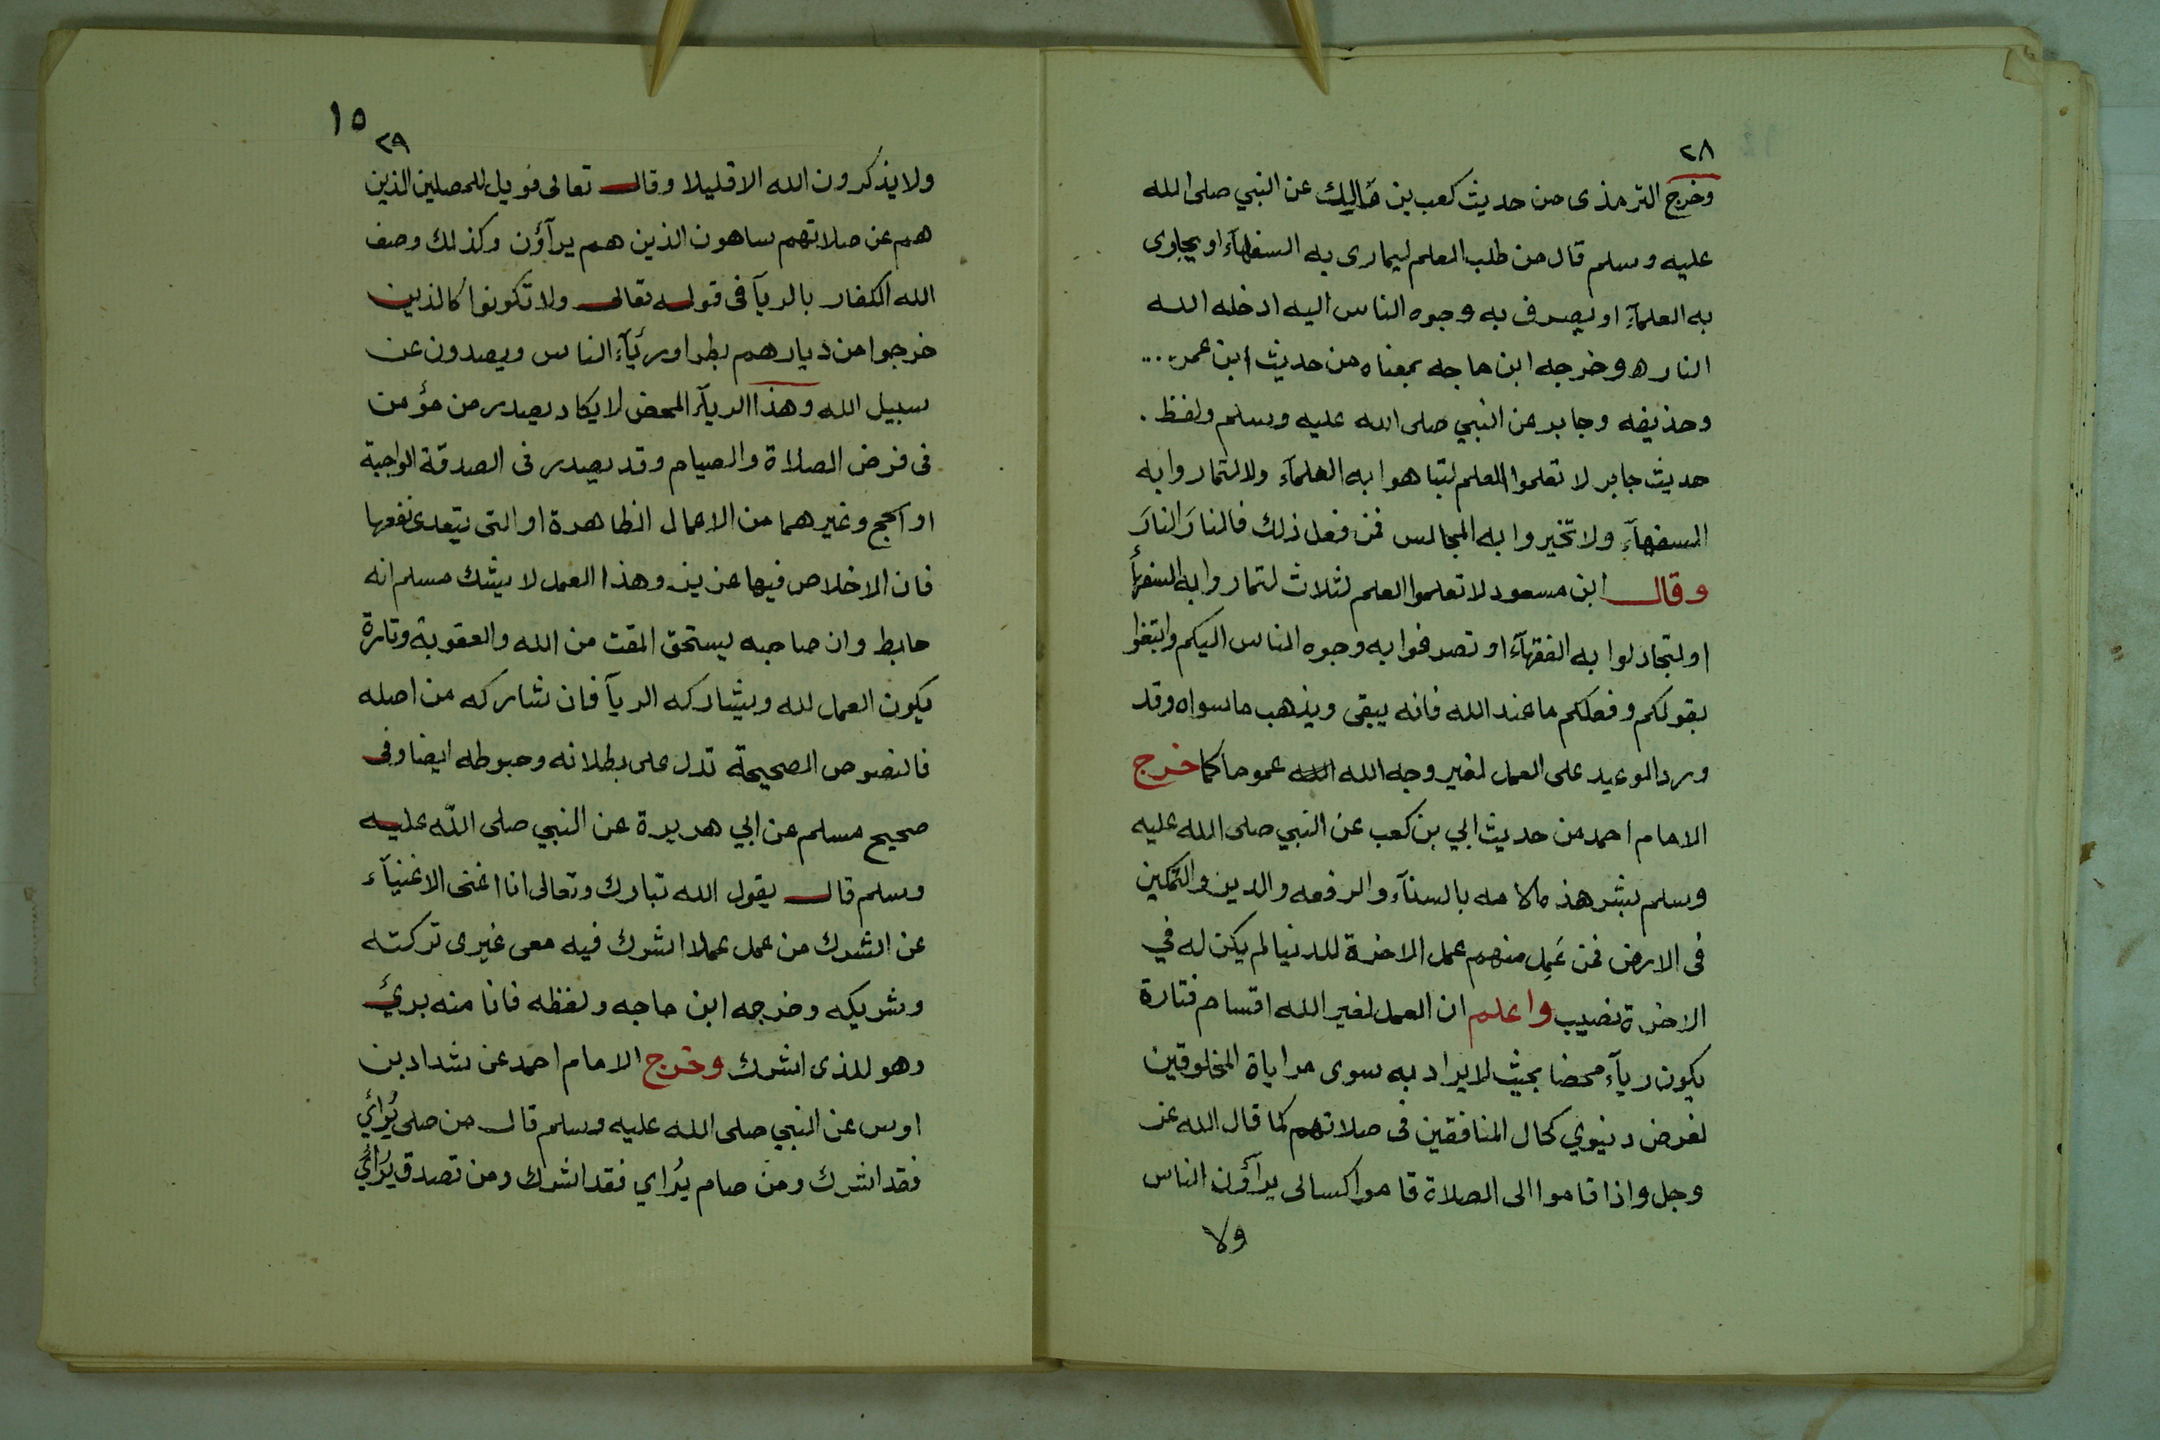 ٢٨
وخرج الترمذى من حديث كعب بن مَالِك عن النبي صلى الله
عليه وسلم قال من طلب العلم ليمارى به السفهآء او يجارى
به العلمآء او يصرف به وجوه الناس اليه ادخله الله
النار ه وخرجه ابن ماجه بمعناه من حديث ابن عمر ...
وحذيفه وجابر عن النبي صلى الله عليه وسلم ولفظ .
حديث جابر لا تعلموا العلم لتباهوا به العلمآء ولا لتماروا به
السفهآء ولا تخيروا به المجالس فمن فعل ذلك فالنارَ النارَ
وقال ابن مسعود لا تعلموا العلم لثلاث لتماروا به السفهآء
او لتجادلوا به الفقهآء او تصرفوا به وجوه الناس اليكم وابتغوا
بقولكم وفعلكم ما عند الله فانه يبقى ويذهب ما سواه وقد
ورد الوعيد على العمل لغير وجه الله الله عموما كما خرج
الامام احمد من حديث ابي بن كعب عن النبي صلى الله عليه
وسلم بشر هذه الامه بالسنآء والرفعه والدين والتمكين
فى الارض فمن عَمِل منهم عمل الاخرة للدنيا لم يكن له في
الاخرة نصيب واعلم ان العمل لغير الله اقسام فتارة
يكون ريآء محضا بحيث لا يراد به سوى مراياة المخلوقين
لغرض دنيوي كحال المنافقين فى صلاتهم كما قال الله عز
وجل واذا قاموا الى الصلاة قاموا كسالى يرآؤن الناس
ولا
١٥
٢٩
ولا يذكرون الله الا قليلا وقال تعالى فويل للمصلين الذين
هم عن صلاتهم ساهون الذين هم يرآؤن وكذلك وصف
الله الكفار بالريآ فى قوله تعالى ولا تكونوا كالذين
خرجوا من ديارهم بطرا ورئيآء الناس ويصدون عن
سبيل الله وهذا الريآء المحض لا يكاد يصدر من مؤمن
فى فرض الصلاة والصيام وقد يصدر فى الصدقة الواجبة
او الحج وغيرهما من الاعمال الظاهرة او التى يتعدى نفعها
فان الاخلاص فيها عزيز وهذا العمل لا يشك مسلم انه
حابط وان صاحبه يستحق المقت من الله والعقوبة وتارة
يكون العمل لله ويشاركه الريآ فان شاركه من اصله
فالنصوص الصحيحة تدل على بطلانه وحبوطه ايضا وفى
صحيح مسلم عن ابي هريرة عن النبي صلى الله عليه
وسلم قال يقول الله تبارك وتعالى انا اغنى الاغنيآء
عن الشرك من عمل عملا اشرك فيه معى غيرى تركته
وشريكه وخرجه ابن ماجه ولفظه فانا منه برئ
وهو للذى اشرك وخرج الامام احمد عن شداد بن
اوس عن النبي صلى الله عليه وسلم قال من صلى يُرائي
فقد اشرك ومن صام يُراي فقد اشرك ومن تصدق يُرائي